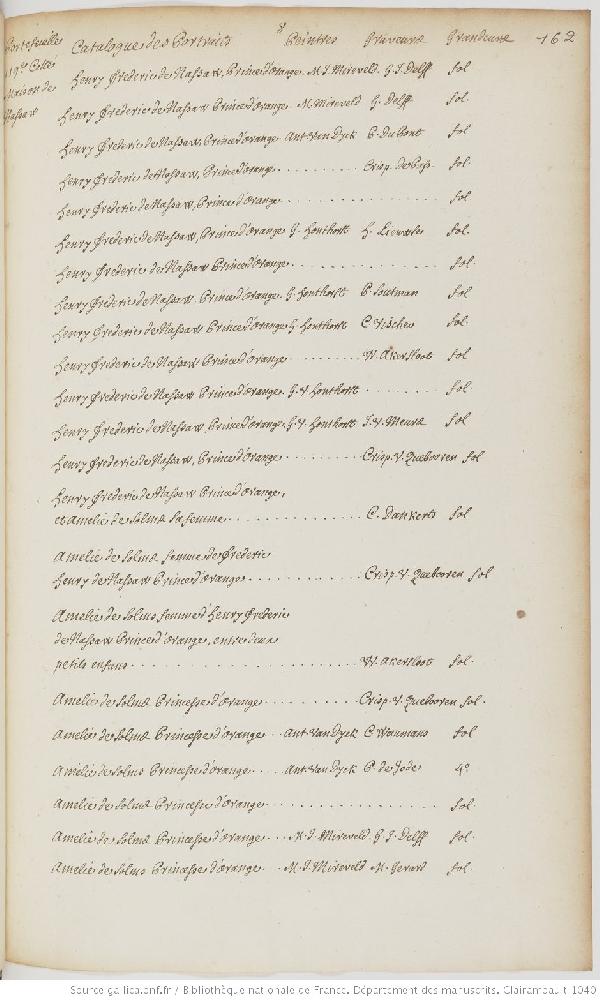 Portefeuille
19e. Cotté
Maison de
Nassaw
Catalogue des Portraits Peintres Graveurs Grandeurs 162
Henry Frederic de Nassaw, Prince d'orange M. J. Mireveld. G. J. Delff fol
Henry Frederic de Nassaw Prince d'orange M. Mireveld G. Delff fol.
Henry Frederic de Nassaw, Prince d'orange Ant. Van Dyck P. du Pont fol
Henry Frederic de Nassaw, Prince d'orange . . . . . . . . . . Crisp. de Pas. fol.
Henry Frederic de Nassaw, Prince d'orange . . . . . . . . . . . . . . . . fol
Henry Frederic de Nassaw, Prince d'orange G. Honthorst H. fol.
Henry Frederic de Nassaw Prince d'orange . . . . . . . . . . . . . . . . fol.
Henry Frederic de Nassaw, Prince d'orange G. Honthorst P. Soutman fol
Henry Frederic de Nassaw, Prince d'orange G. Honthorst C. Vischer fol.
Henry Frederic de Nassaw Prince d'orange . . . . . . . . . W. Akersloot fol
Henry Frederic de Nassaw, Prince d'orange G. V. Honthorst . . . . . . . . fol.
Henry Frederic de Nassaw, Prince d'orange G. V. Honthorst J. V. Meurs fol
Henry Frederic de Nassaw, Prince d'orange . . . . . . . . . Crisp. V. Quebooren fol
Henry Frederic de Nassaw Prince d'orange,
et Amelie de Solms sa femme . . . . . . . . . . . . . . C. Dankerts fol
Amelie de Solms femme de Frederic
Henry de Nassaw Prince d'orange . . . . . . . . . . . . Crisp. V. Quebooren fol
Amelie de Solms femme d'Henry Frederic
de Nassaw Prince d'orange, entre deux
petits enfans . . . . . . . . . . . . . . . . . . . . . . . W. Akersloot fol.
Amelie de Solms Princesse d'orange . . . . . . . . . . Crisp. V. Quebooren fol.
Amelie de Solms, Princesse d'orange . . Ant. Van Dyck C. Waumans fol
Amelie de Solms Princesse d'orange . . . . Ant. Van Dyck P. de Jode 4o
Amelie de Solms Princesse d'orange . . . . . . . . . . . . . . . . . . fol.
Amelie de Solms Princesse d'orange . . . M. J. Mireveld. G. J. Delff fol.
Amelie de Solms Princesse d'orange . . M. J. Mireveld M. fol.
Source gallica.bnf.fr / Bibliothèque nationale de France. Département des manuscrits. Clairambault 1040